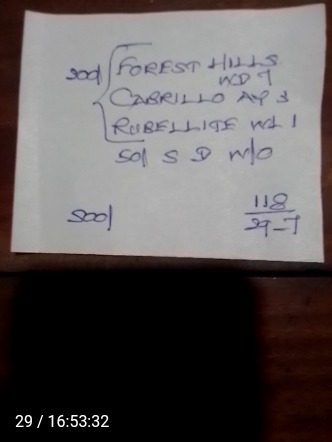 200/ FOREST HILLS
WD 7
CABRILLO AP 3
RUBELLITE WL 1
50/ S D W/O
500/
118
29-7
29 / 16:53:32